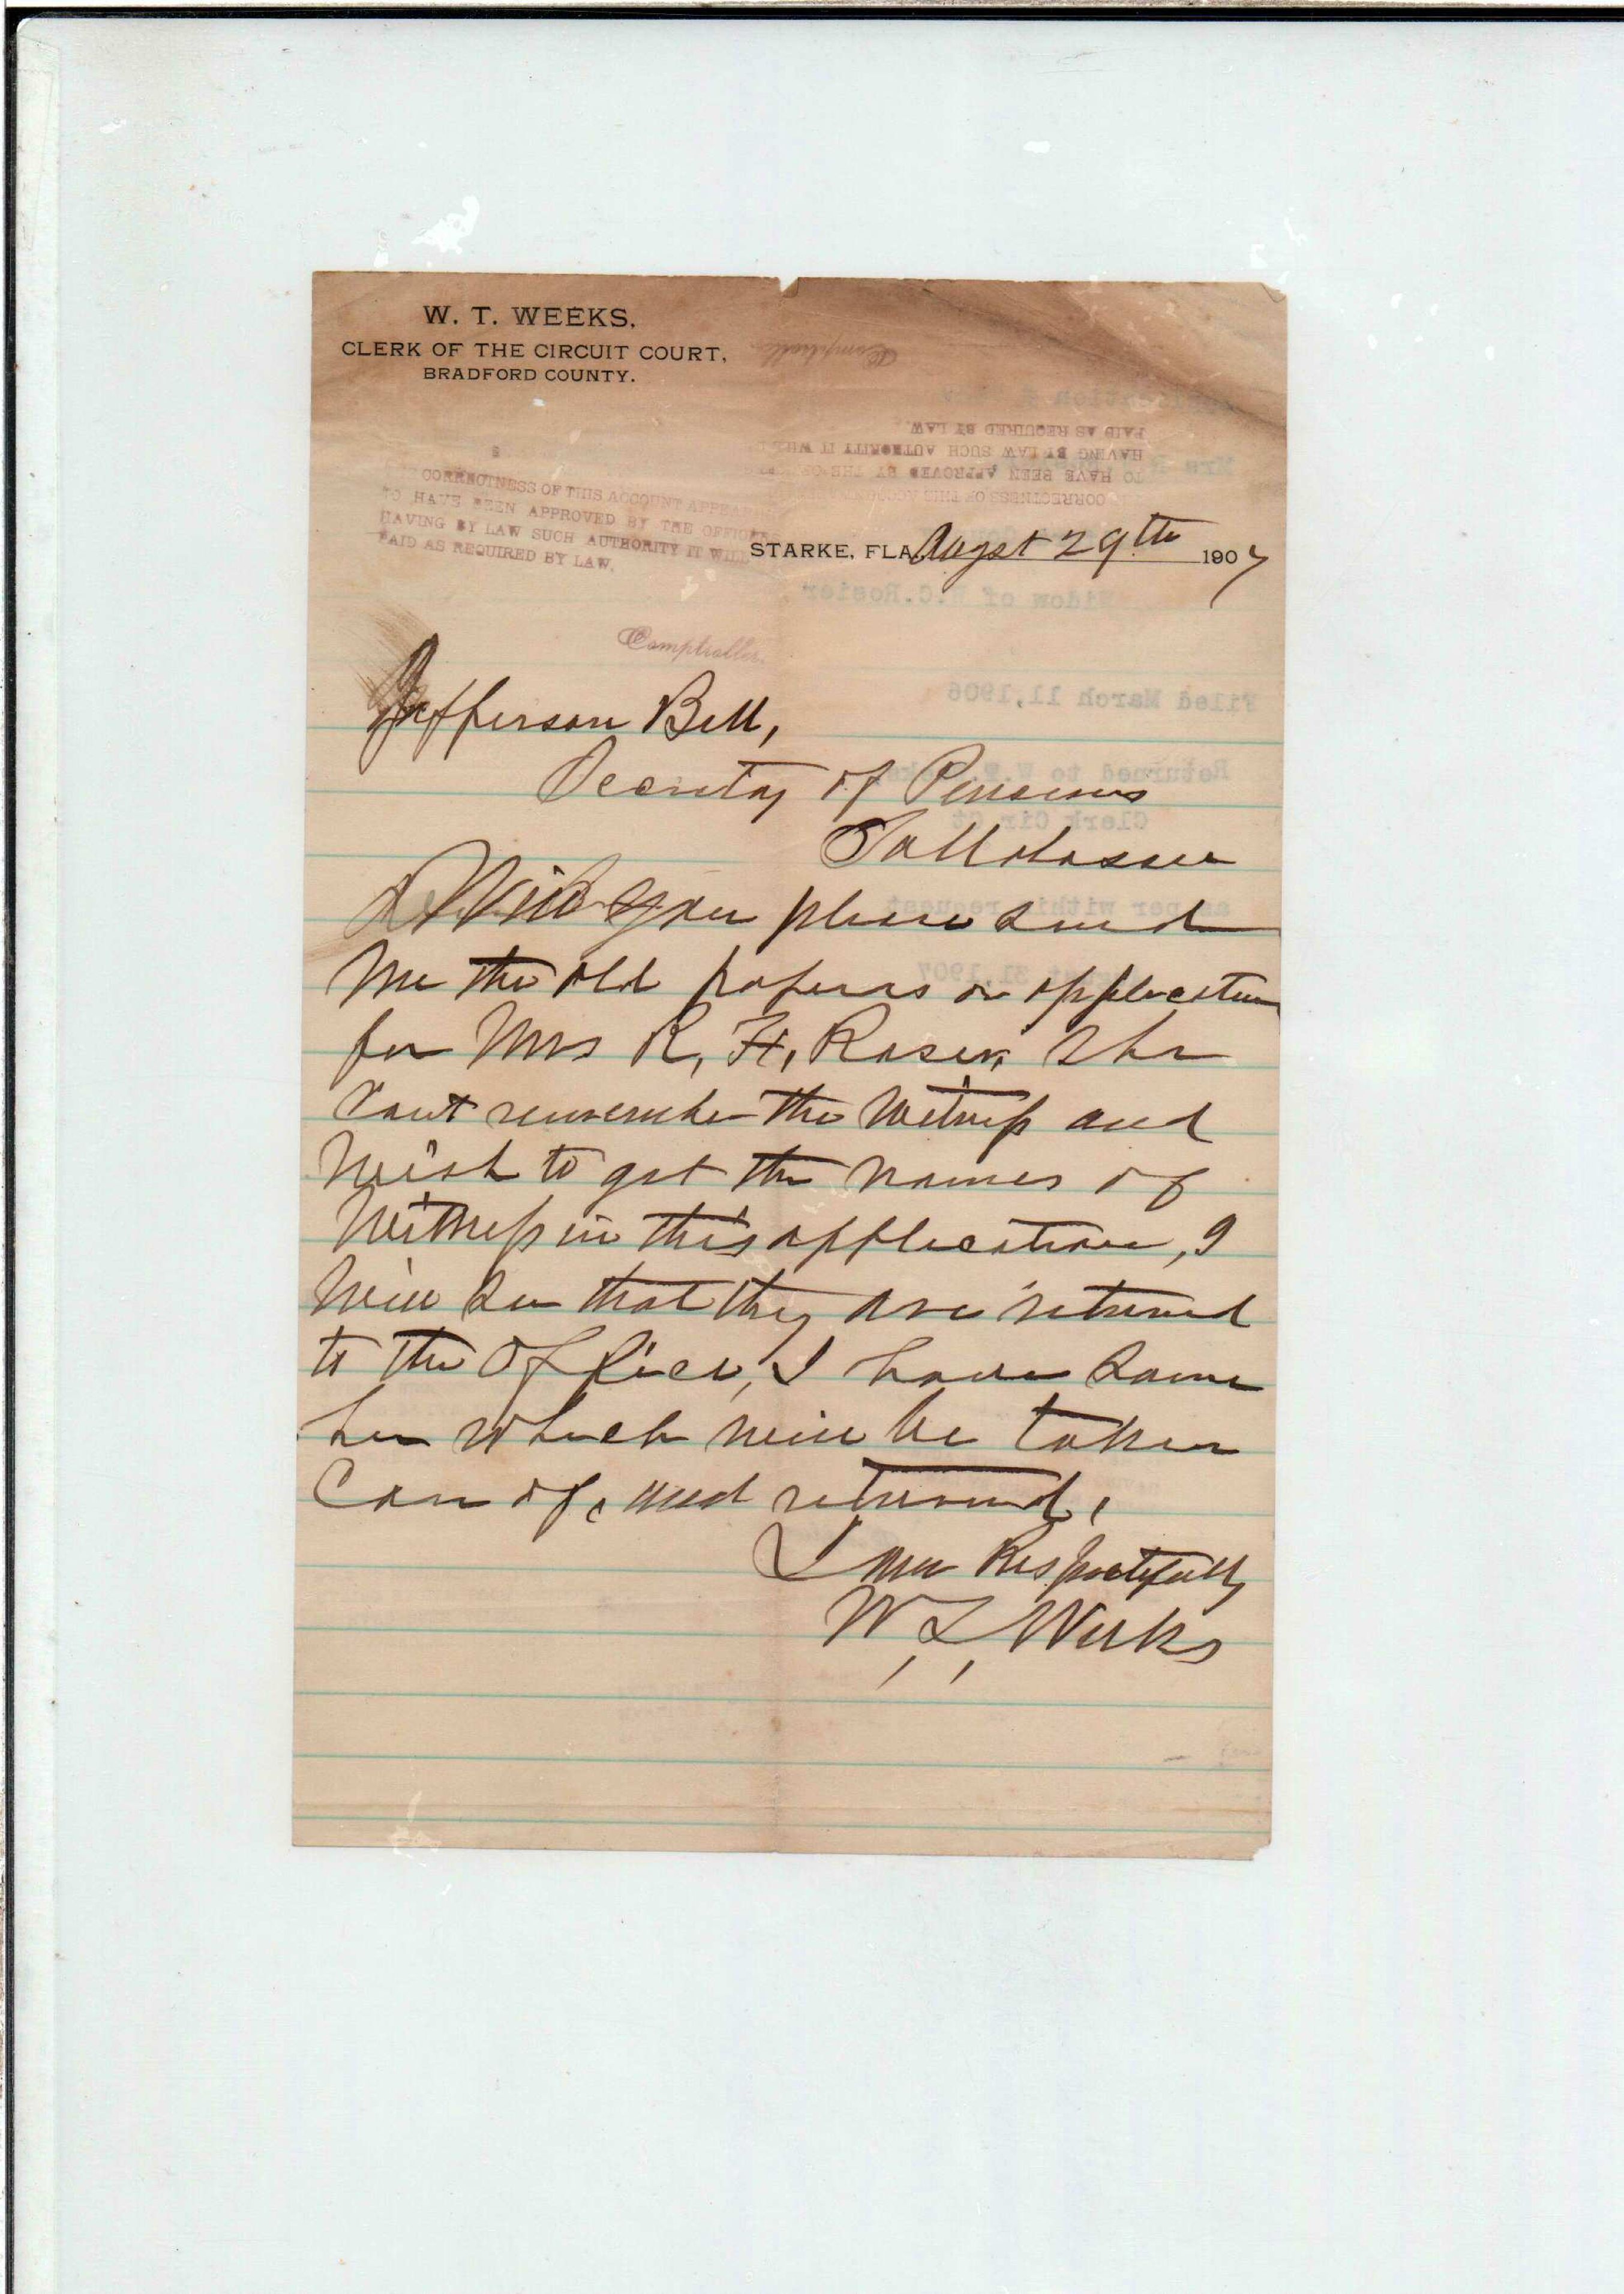 W. T. WEEKS,
CLERK OF THE CIRCUIT COURT,
BRADFORD COUNTY.
CORRECTNESS OF THIS ACCOUNT APPEAR
TO HAVE BEEN APPROVED BY THE OFFICER
HAVING BY LAW SUCH AUTHORITY IT WILL
PAID AS REQUIRED BY LAW.
Comptroller.
STARKE, FLA. Augst 29th 1907
Jefferson Bell,
Secretay of Pensions
Tallahassee
Will you please send
me the old papers or application
for Mrs R, H, Rosier, She
cant remember the Witness and
Wish to get the names of
Witness in this application, I
Will see that they are returned
to the Office, I have some
her which will be taken
Care of, and returned,
I am Respectfully
W, T, Weeks
Widow of C. Rosier
Filed March 11, 1906
Returned to W.T. Weeks
Clerk Cir Ct
as per within request
31, 1907